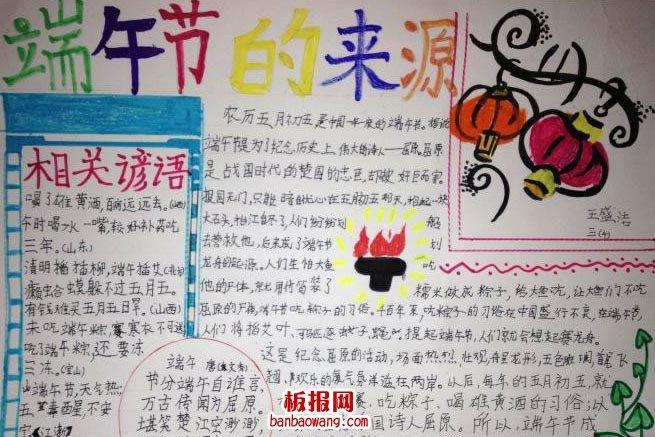 端午节的来源
相关谚语
喝了雄黄酒,百病远远丢。(山西)
午时喝水一嘴,较好补药吃
三年。(山东)
清明插柳,端午插艾
癞虫合蟆躲不过五月五。
有钱难买五月五日旱。(山西)
未吃端午粽,寒衣不可送
吃了端午粽,还要冻
三冻。
端午节,天气热;
五毒醒,不安
宁
农历五月初五是中国一年一度的端午节。
端午节是为了纪念历史上伟大的诗人——屈原。屈原
是战国时代的楚国的忠臣,却被奸臣所害。
报国无门,只能
在五月初五那天,抱起一块
大石头,投江自尽了。人们纷纷划
船
去营救他,后来成了端午节
划
龙舟的起源。人们生怕大鱼
吃
他的尸体,
糯米做成粽子,给大鱼吃,让大鱼们不吃
屈原的尸体,端午节吃粽子的习俗。千百年来,吃粽子的习俗在中国盛行不衰,在端午节,
人们将插艾叶,
提起端午节,人们就会想起赛龙舟。
这是纪念屈原的活动,场面热烈、壮观,舟呈龙形,五色斑斓,首尾飞
翘,
欢乐的
气氛洋溢在两岸。以后,每年的五月初五,就
吃粽子、喝雄黄酒的习俗;以
国诗人屈原。所以,端午节成
端午
唐(文秀)
节分端午自谁言,
万古传闻为屈原。
堪笑楚江空渺渺,
王盛浩
板报网
banbaowang.com